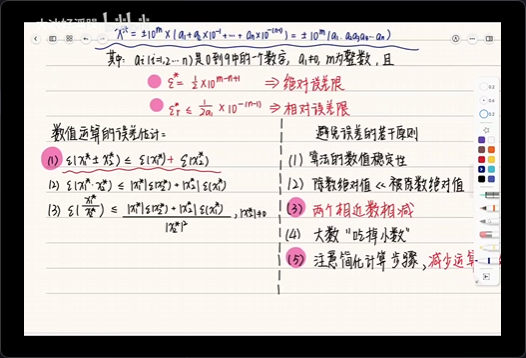 x* = ±10^m × (a₁ + a₂ × 10⁻¹ + ⋯ + aₙ × 10^-(n-1)) = ±10^m (a₁.a₂a₃a₄⋯aₙ)
其中: ai(i=1,2⋯n) 是0到9中的一个数字, a₁≠0, m为整数, 且
ε* = 1/2 × 10^(m-n+1) ⇒ 绝对误差限
εr* ≤ 1/(2a₁) × 10^-(n-1) ⇒ 相对误差限
数值运算的误差估计:
(1) ε(x₁* ± x₂*) ≤ ε(x₁*) + ε(x₂*)
(2) ε(x₁* · x₂*) ≤ |x₁*|ε(x₂*) + |x₂*|ε(x₁*)
(3) ε(x₁*/x₂*) ≤ (|x₁*|ε(x₂*) + |x₂*|ε(x₁*))/|x₂*|², |x₂*|≠0
避免误差的若干原则
(1) 算法的数值稳定性
(2) 除数绝对值 << 被除数绝对值
(3) 两个相近数相减
(4) 大数“吃掉小数”
(5) 注意简化计算步骤, 减少运算
0.2
0.4
0.2